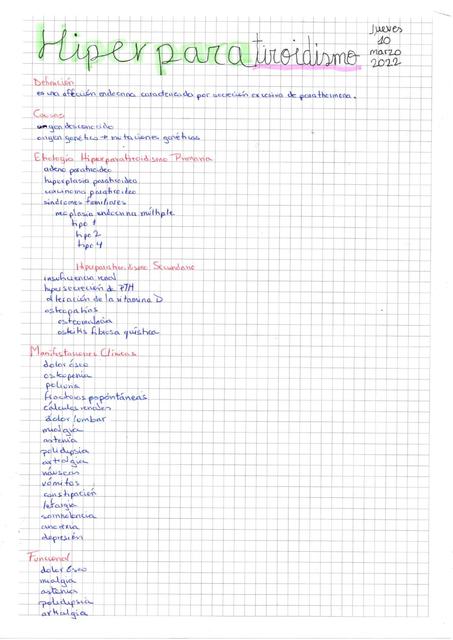 Hiperparatiroidismo
Jueves
10
marzo
2022
Definición
es una afección endocrina caracterizada por secreción excesiva de parathormona.
Causas
origen desconocido
origen genético → mutaciones genéticas
Etiología Hiperparatiroidismo Primario
adeno paratiroideo
hiperplasia paratiroidea
carcinoma paratiroideo
síndromes familiares
neoplasia endocrina múltiple
tipo 1
tipo 2
tipo 4
Hiperparatiroidismo Secundario
insuficiencia renal
hipersecreción de PTH
alteración de la vitamina D
osteopatías
osteomalacia
osteitis fibrosa quística
Manifestaciones Clínicas
dolor óseo
osteopenia
poliuria
fracturas
cálculos renales
dolor lumbar
mialgia
astenia
polidipsia
artralgia
náuseas
vómitos
constipación
letargia
somnolencia
anorexia
depresión
Funcional
dolor óseo
mialgia
astenia
polidipsia
artralgia